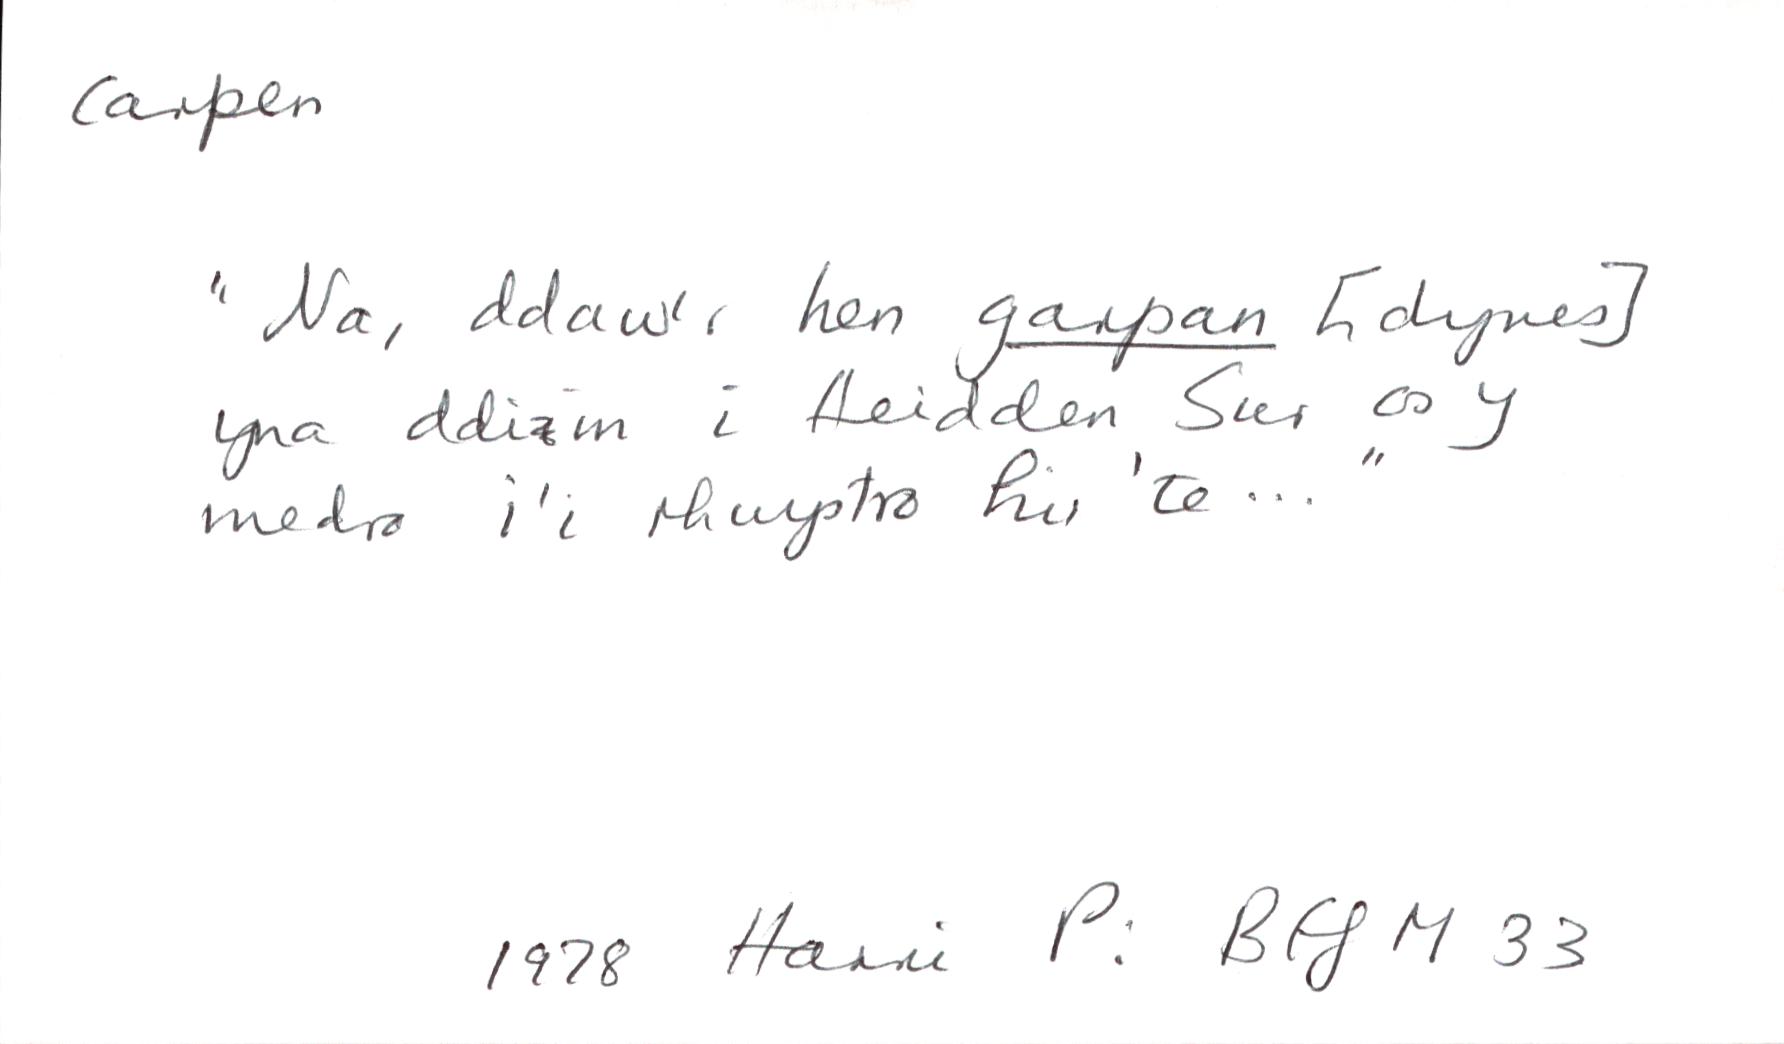 Carpen
"Na, ddaw'r hen garpan [dynes]
yna ddim i Heidden Sur os y
medra i'i rhwystro hi, 'te ..."
1978 Harri P: BFfM 33